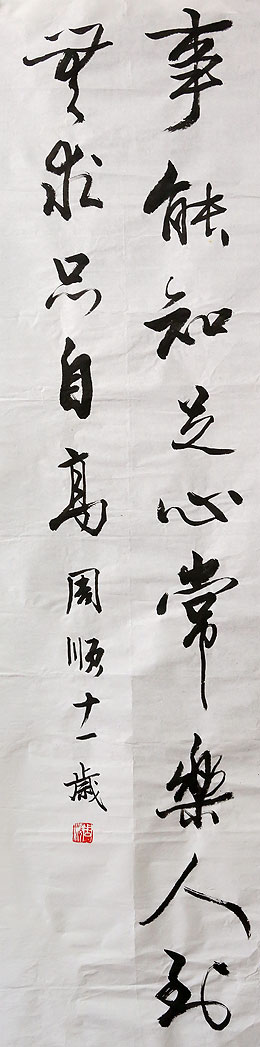 事能知足心常樂人到
無求品自高周順十一歲